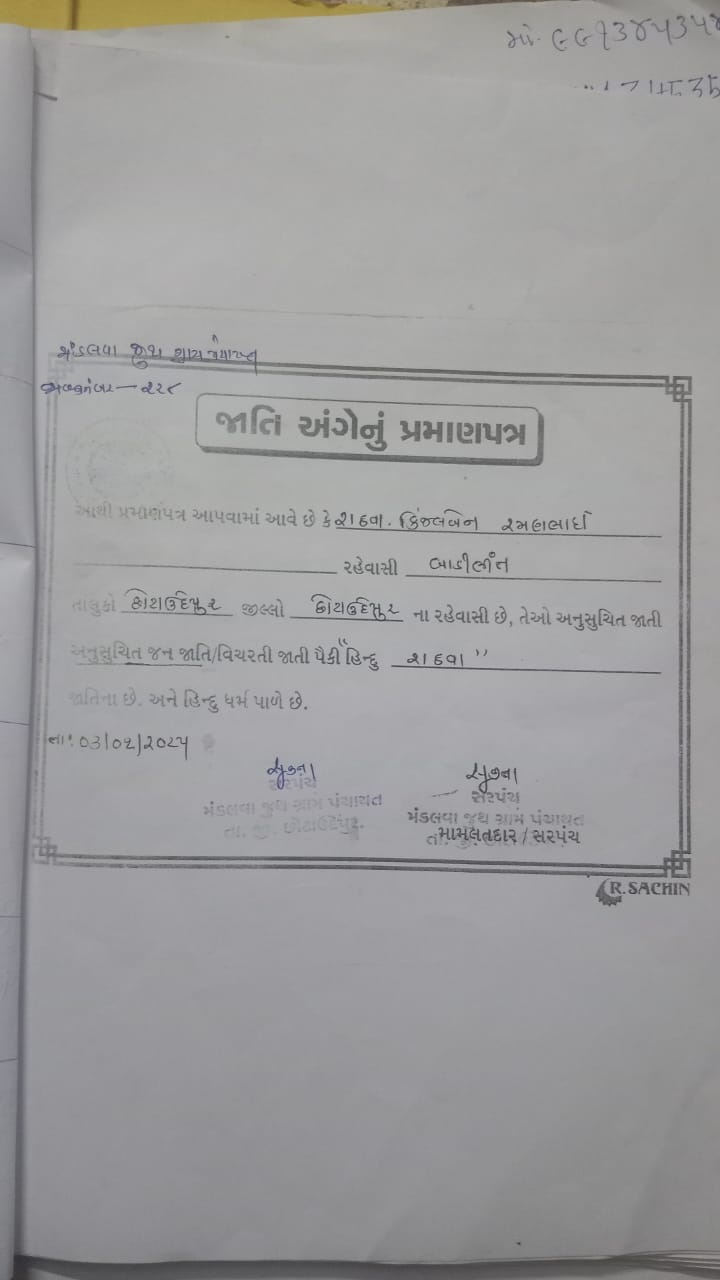 મો. ૯૯૧૩૪૫૩૫૪
મંડલવા જુથ ગ્રામ પંચાયત
જા.નંબર - ૨૨૮
જાતિ અંગેનું પ્રમાણપત્ર
આથી પ્રમાણપત્ર આપવામાં આવે છે કે રાઠવા. કિંજલબેન રમણભાઈ
રહેવાસી
તાલુકો છોટાઉદેપુર જીલ્લો છોટાઉદેપુર ના રહેવાસી છે, તેઓ અનુસુચિત જાતી
અનુસુચિત જન જાતિ/વિચરતી જાતી પૈકી "હિન્દુ રાઠવા"
જાતિના છે. અને હિન્દુ ધર્મ પાળે છે.
તા: 03/02/2025
સરપંચ સરપંચ
મંડલવા જુથ ગ્રામ પંચાયત મંડલવા જુથ ગ્રામ પંચાયત
તા. જી. છોટાઉદેપુર. મામલતદાર / સરપંચ
R. SACHIN